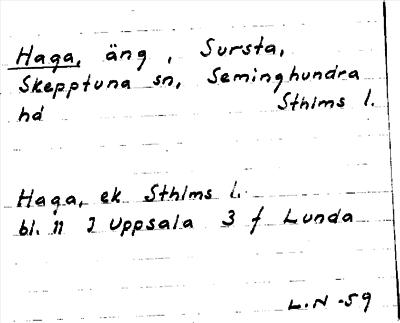 Haga, äng, Sursta,
Skepptuna sn, Seminghundra
hd Sthlms l.
Haga, ek. Sthlms l.
bl. 11 I Uppsala 3 f Lunda
L.N -59